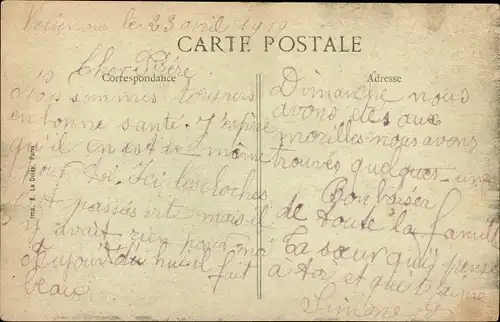 le 23 avril 19
CARTE POSTALE
Correspondance
Adresse
Cher Frère
Nous sommes toujours
en bonne santé. J'espère
qu'il en est de même
pour toi. Ici les cloches
ont passés vite mais il
y avait rien pour moi
Aujour'd'hui il fait
beau
Dimanche nous
avons étés aux
morilles nous avons
trouvés quelques-une
Bon baiser
de toute la famille
Ta sœur qui pense
à toi et qui t'aime
Simone
Imp. E. Le Deley, Paris